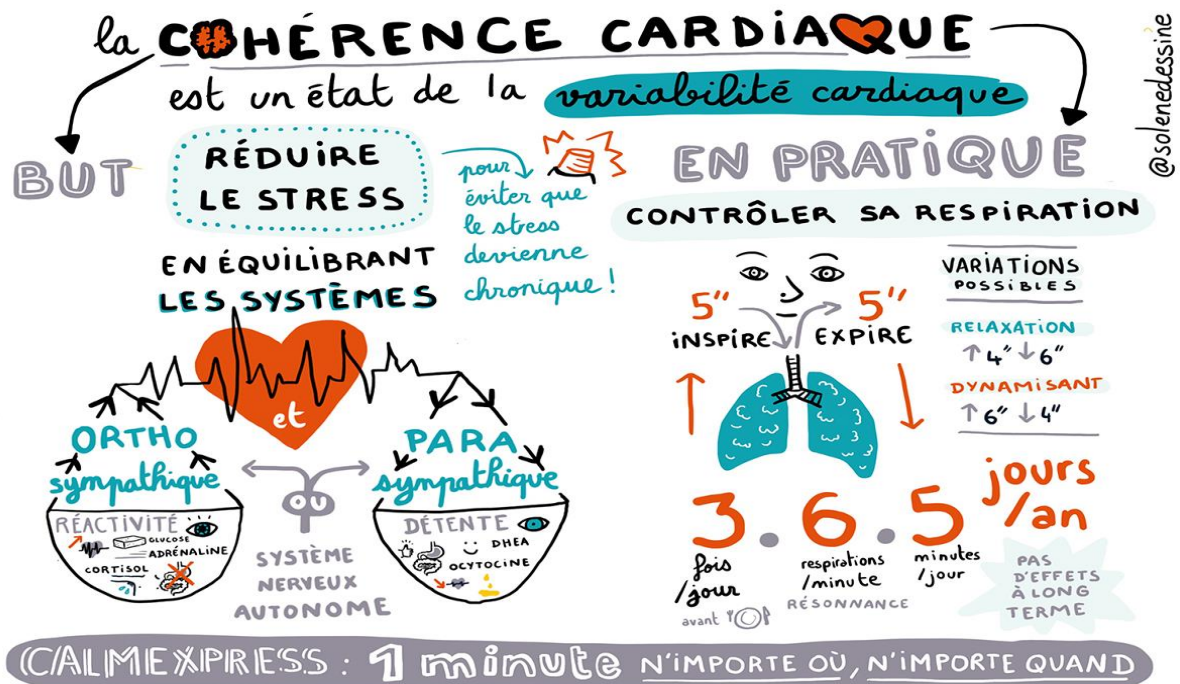 la COHÉRENCE CARDIAQUE
est un état de la variabilité cardiaque
@solenedessine
BUT
RÉDUIRE
LE STRESS
pour
éviter que
le stress
devienne
chronique !
EN ÉQUILIBRANT
LES SYSTÈMES
et
ORTHO
sympathique
PARA
sympathique
OU
RÉACTIVITÉ
GLUCOSE
ADRÉNALINE
CORTISOL
DÉTENTE
DHEA
OCYTOCINE
SYSTÈME
NERVEUX
AUTONOME
EN PRATIQUE
CONTRÔLER SA RESPIRATION
5"
INSPIRE
5"
EXPIRE
VARIATIONS
POSSIBLES
RELAXATION
↑ 4" ↓ 6"
DYNAMISANT
↑ 6" ↓ 4"
3.6.5 jours
/an
fois
/jour
avant
respirations
/minute
RÉSONNANCE
minutes
/jour
PAS
D'EFFETS
À LONG
TERME
CALMEXPRESS : 1 minute N'IMPORTE OÙ, N'IMPORTE QUAND